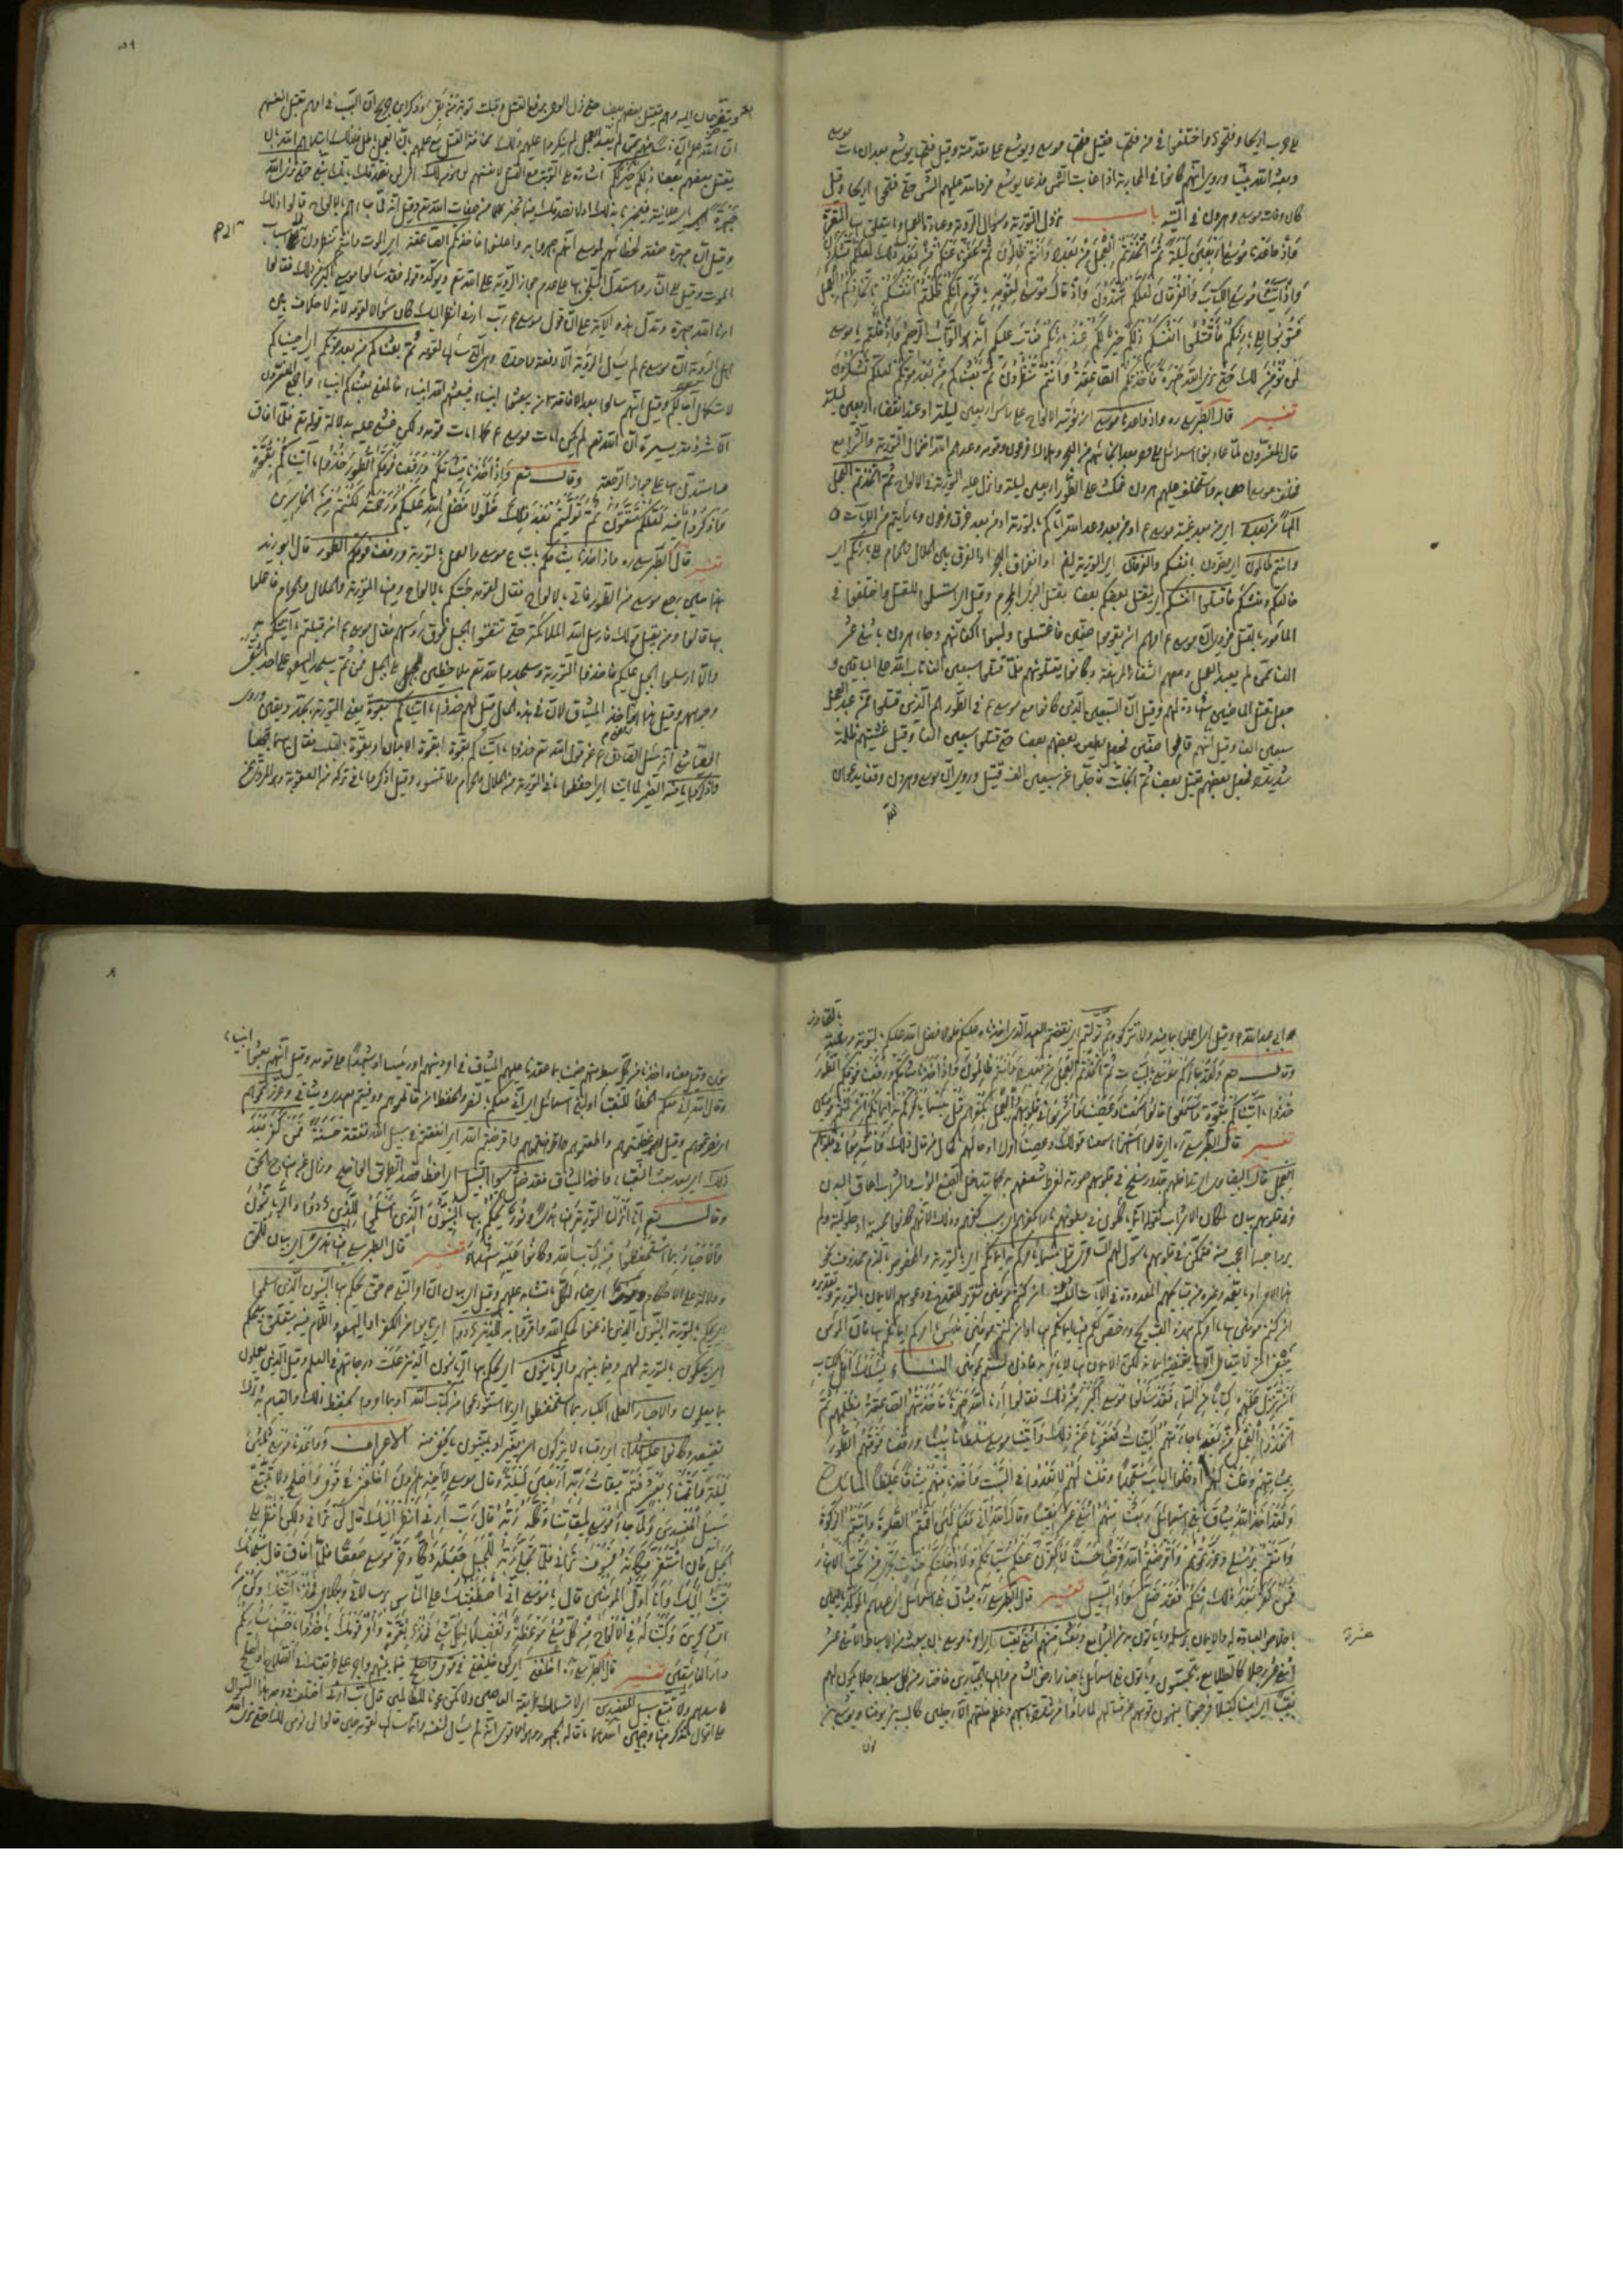 على حرب اريحا وفتحوه واختلفوا في من فتحها فقيل فتحها موسى ويوشع على مقدمته وقيل فتحها يوشع بعد ان مات موسى
وبعثه الله نبيا وروي انهم كانوا في المحاربة اذ غابت الشمس فدعا يوشع فرد الله عليهم الشمس حتى فتحوا اريحا وقيل
كان وفات موسى وهرون في التيه باب نزول التورية وسؤال الرؤية وعبادة العجل وما يتعلق بها البقرة
وَاذْ وٰعَدنا مُوسى اَرْبَعينَ لَيْلَةً ثُمَّ اتَّخَذْتُمُ الْعِجْلَ مِنْ بَعْدِهِ وَاَنْتُمْ ظالِمُونَ ثُمَّ عَفَوْنا عَنْكُمْ مِنْ بَعْدِ ذلِكَ لَعَلَّكُمْ تَشْكُرُونَ
وَاذْ اٰتَيْنا مُوسَى الْكِتابَ وَالْفُرْقانَ لَعَلَّكُمْ تَهْتَدُونَ وَاذْ قالَ مُوسى لِقَوْمِهِ يا قَوْمِ اِنَّكُمْ ظَلَمْتُمْ اَنْفُسَكُمْ بِاتِّخاذِكُمُ الْعِجْلَ
فَتُوبُوا اِلى بارِئِكُمْ فَاقْتُلُوا اَنْفُسَكُمْ ذلِكُمْ خَيْرٌ لَكُمْ عِنْدَ بارِئِكُمْ فَتابَ عَلَيْكُمْ اِنَّهُ هُوَ التَّوّابُ الرَّحيمُ وَاِذْ قُلْتُمْ يا موسى
لَنْ نُؤْمِنَ لَكَ حَتّى نَرَى اللهَ جَهْرَةً فَاَخَذَتْكُمُ الصّاعِقَةُ وَاَنْتُمْ تَنْظُرُونَ ثُمَّ بَعَثْناكُمْ مِنْ بَعْدِ مَوْتِكُمْ لَعَلَّكُمْ تَشْكُرُونَ
تفسير قال الطبرسي ره واذ واعدنا موسى ان نؤتيه الالواح على رأس اربعين ليلة او عند انقضاء اربعين ليلة
قال المفسرون لما عاد بنو اسرائيل الى مصر بعد انجائهم من البحر وهلاك فرعون وقومه وعدهم الله انزال التورية والشرايع
فخلف موسى اصحابه واستخلف عليهم هرون فمكث على الطور اربعين ليلة وانزل عليه التورية في الالواح ثم اتخذتم العجل
الها من بعده اي من بعد غيبة موسى ع او من بعد وعد الله اياكم بالتورية او من بعد غرق فرعون وما رأيتم من الايات
وانتم ظالمون اي مضرون بانفسكم والفرقان اي التورية ايضا او انفراق البحر او الفرق بين الحلال والحرام الى بارئكم اي
خالقكم ومنشئكم فاقتلوا انفسكم اي ليقتل بعضكم بعضا بقتل البرئ المجرم وقيل اي استسلموا للقتل واختلفوا في
المأمور بالقتل فروي ان موسى ع امرهم ان يقوموا صفين فاغتسلوا ولبسوا اكفانهم وجاء هرون باثني عشر
الفا ممن لم يعبد العجل ومعهم الشفار المرهفة وكانوا يقتلونهم فلما قتلوا سبعين الفا تاب الله على الباقين و
جعل قتل الماضين شهادة لهم وقيل ان السبعين الذين كانوا مع موسى ع في الطور هم الذين قتلوا ممن عبد العجل
سبعين الفا وقيل انهم قاموا صفين فجعل يطعن بعضهم بعضا حتى قتلوا سبعين الفا وقيل غشيتهم ظلمة
شديدة فجعل بعضهم يقتل بعضا ثم انجلت فاجلوا عن سبعين الف قتيل وروي ان موسى وهرون وقفا يدعوان
الله
ويتضرعان اليه وهم يقتل بعضهم بعضا حتى نزل الوحي برفع القتل وقبلت توبة من بقي وذكر ابن جريح ان السبب في امرهم بقتل انفسهم
ان الله علم ان ناسا منهم ممن لم يعبد العجل لم ينكروا عليهم ذلك مخافة القتل مع علمهم بان العجل باطل فلذلك ابتلاهم الله بان
يقتل بعضهم بعضا ذلكم خير لكم اشارة الى التوبة مع القتل لانفسهم لن نؤمن لك اي لن نصدقك حتى نرى الله
جهرة
وقيل ان جهرة صفة لخطابهم لموسى انهم جهروا به واعلنوا فاخذتكم الصاعقة اي الموت وانتم تنظرون الى اسباب
الموت وقيل الى النار واستدل البلخي بها على عدم جواز الرؤية على الله تع ويؤكده قوله فقد سألوا موسى اكبر من ذلك فقالوا
ارنا الله جهرة وتدل هذه الاية على ان قول موسى ع رب ارني انظر اليك كان سؤالا لقومه لانه لا خلاف بين
اهل التورية ان موسى ع لم يسأل الرؤية الا دفعة واحدة وهي التي سألها لقومه ثم بعثناكم من بعد موتكم اي احييناكم
لاستكمال آجالكم وقيل انهم سألوا بعد الافاقة ان يبعثوا انبياء فبعثهم الله انبياء فالمعنى بعثناكم انبياء واجمع المفسرون
الا شرذمة يسيرة ان الله تع لم يكن امات موسى ع كما امات قومه ولكن غشي عليه بدلالة قوله تع فلما افاق
واستدل بها على جواز الرجعة وقالـ تع وَاِذْ اَخَذْنا ميثاقَكُمْ وَرَفَعْنا فَوْقَكُمُ الطُّورَ خُذُوا ما آتَيْناكُمْ بِقُوَّةٍ
وَاذْكُرُوا ما فيهِ لَعَلَّكُمْ تَتَّقُونَ ثُمَّ تَوَلَّيْتُمْ مِنْ بَعْدِ ذلِكَ فَلَوْلا فَضْلُ اللهِ عَلَيْكُمْ وَرَحْمَتُهُ لَكُنْتُمْ مِنَ الْخاسِرينَ
تفسير قال الطبرسي ره واذ اخذنا ميثاقكم باتباع موسى والعمل بالتورية ورفعنا فوقكم الطور قال ابو زيد
هذا حين رجع موسى من الطور فاتى بالالواح فقال لقومه جئتكم بالالواح وفيها التورية والحلال والحرام فاعملوا
بها قالوا ومن يقبل قولك فارسل الله الملائكة حتى نتقوا الجبل فوق رؤسهم فقال موسى ع ان قبلتم ما آتيتكم به
والا ارسلوا الجبل عليكم فاخذوا التورية وسجدوا لله تع ملاحظين الى الجبل فمن ثم يسجد اليهود على احد شقي
وجوههم وقيل هذا هو اخذ الميثاق لان في هذه الحال قيل لهم خذوا ما آتيناكم بقوة يعني التورية بجد ويقين وروى
العياشي انه سئل الصادق ع عن قول الله تع خذوا ما آتيناكم بقوة ابقوة الابدان او بقوة بالقلب فقال بهما جميعا
واذكروا ما فيه الضمير لما آتينا اي احفظوا ما في التورية من الحلال والحرام ولا تنسوه وقيل اذكروا ما في تركه من العقوبة وهو المروي عن
ابي عبد الله ع وقيل اي اعملوا بما فيه ولا تتركوه ثم توليتم اي نقضتم العهد الذي اخذناه عليكم فلولا فضل الله عليكم بالتوبة ورحمته بالتجاوز
وقالـ وَلَقَدْ جاءَكُمْ مُوسى بِالْبَيِّناتِ ثُمَّ اتَّخَذْتُمُ الْعِجْلَ مِنْ بَعْدِهِ وَاَنْتُمْ ظالِمُونَ وَاِذْ اَخَذْنا ميثاقَكُمْ وَرَفَعْنا فَوْقَكُمُ الطُّورَ
خُذُوا ما آتَيْناكُمْ بِقُوَّةٍ وَاسْمَعُوا قالُوا سَمِعْنا وَعَصَيْنا وَاُشْرِبُوا في قُلُوبِهِمُ الْعِجْلَ بِكُفْرِهِمْ قُلْ بِئْسَما يَأْمُرُكُمْ بِهِ ايمانُكُمْ اِنْ كُنْتُمْ مُؤْمِنينَ
تفسير قال الطبرسي ره اي قالوا استهزاء سمعنا قولك وعصينا امرك او حالهم كحال من قال ذلك وَاُشْرِبُوا في قلوبهم
العجل قال البيضاوي اي تداخلهم حبه ورسخ في قلوبهم صورته لفرط شعفهم به كما يتداخل الصبغ الثوب والشراب اعماق البدن
وفي قلوبهم بيان لمكان الاشراب كقوله انما يأكلون في بطونهم نارا بكفرهم اي بسبب كفرهم وذلك لانهم كانوا مجسمة او حلولية ولم
يروا جسما اعجب منه فتمكن في قلوبهم ما سول لهم السامري قل بئسما يأمركم به ايمانكم اي بالتورية والمخصوص بالذم محذوف نحو
هذا الامر او ما يعمه وغيره من قبايحهم المعدودة في الايات الثلث ان كنتم مؤمنين تقرير للقدح في دعويهم الايمان بالتورية وتقديره
ان كنتم مؤمنين بها ما امركم بهذه القبايح ورخص لكم فيها ايمانكم بها او ان كنتم مؤمنين بها فبئسما يأمركم به ايمانكم بها لان المؤمن
ينبغي ان لا يتعاطى الا ما يقتضيه ايمانه لكن الايمان بها لا يأمر به فاذن لستم بمؤمنين النساء يَسْئَلُكَ اَهْلُ الْكِتابِ
اَنْ تُنَزِّلَ عَلَيْهِمْ كِتاباً مِنَ السَّماءِ فَقَدْ سَأَلُوا مُوسى اَكْبَرَ مِنْ ذلِكَ فَقالُوا اَرِنَا اللهَ جَهْرَةً فَاَخَذَتْهُمُ الصّاعِقَةُ بِظُلْمِهِمْ ثُمَّ
اتَّخَذُوا الْعِجْلَ مِنْ بَعْدِ ما جاءَتْهُمُ الْبَيِّناتُ فَعَفَوْنا عَنْ ذلِكَ وَآتَيْنا مُوسى سُلْطاناً مُبيناً وَرَفَعْنا فَوْقَهُمُ الطُّورَ
بِميثاقِهِمْ وَقُلْنا لَهُمُ ادْخُلُوا الْبابَ سُجَّداً وَقُلْنا لَهُمْ لا تَعْدُوا فِي السَّبْتِ وَاَخَذْنا مِنْهُمْ ميثاقاً غَليظاً المائدة
وَلَقَدْ اَخَذَ اللهُ ميثاقَ بَني اِسْرائيلَ وَبَعَثْنا مِنْهُمُ اثْنَيْ عَشَرَ نَقيباً وَقالَ اللهُ اِنّي مَعَكُمْ لَئِنْ اَقَمْتُمُ الصَّلوةَ وَآتَيْتُمُ الزَّكوةَ
وَآمَنْتُمْ بِرُسُلي وَعَزَّرْتُمُوهُمْ وَاَقْرَضْتُمُ اللهَ قَرْضاً حَسَناً لَاُكَفِّرَنَّ عَنْكُمْ سَيِّئاتِكُمْ وَلَاُدْخِلَنَّكُمْ جَنّاتٍ تَجْري مِنْ تَحْتِهَا الْاَنْهارُ
فَمَنْ كَفَرَ بَعْدَ ذلِكَ مِنْكُمْ فَقَدْ ضَلَّ سَواءَ السَّبيلِ تفسير قال الطبرسي ره ميثاق بني اسرائيل اي عهدهم المؤكد باليمين
باخلاص العبادة له والايمان برسله وما يأتون به من الشرايع وبعثنا منهم اثني عشر نقيبا اي امرنا موسى بان يبعث من الاسباط الاثني عشر
عشرة
اثني عشر رجلا كالطلايع يتجسسون ويأتون بني اسرائيل باخبار ارض الشام واهلها الجبارين فاختار من كل سبط رجلا يكون لهم
نقيبا اي امينا كفيلا فرجعوا ينهون قومهم عن قتالهم لما رأوا من شدة بأسهم وعظم خلقهم الا رجلين كالب بن يوفنا ويوشع بن
نون
نون وقيل معناه اخذنا من كل سبط منهم ضمينا بما عقدنا عليهم الميثاق في امر دينهم او رئيسا او شهيدا على قومه وقيل انهم بعثوا انبياء
وقال الله اني معكم الخطاب للنقباء او لبني اسرائيل اي اني معكم بالنصر والحفظ ان قاتلتموهم ووفيتم بعهدي وميثاقي وعزرتموهم
اي نصرتموهم وقيل اي عظمتموهم واطعتموهم واقرضتم الله اي انفقتم في سبيل الله نفقة حسنة فَمَنْ كَفَرَ بَعْدَ
ذلك اي بعد بعث النقباء واخذ الميثاق فقد ضل سواء السبيل اي اخطأ قصد الطريق الواضح وزال عن منهاج الحق
وقالـ تع اِنّا اَنْزَلْنَا التَّوْريةَ فيها هُدًى وَنُورٌ يَحْكُمُ بِهَا النَّبِيُّونَ الَّذينَ اَسْلَمُوا لِلَّذينَ هادُوا وَالرَّبّانِيُّونَ
وَالْاَحْبارُ بِمَا اسْتُحْفِظُوا مِنْ كِتابِ اللهِ وَكانُوا عَلَيْهِ شُهَداءَ تفسير قال الطبرسي فيها هدى اي بيان للحق
ودلالة على الاحكام ونور اي ضياء لكل ما تشابه عليهم وقيل اي بيان ان امر النبي ص حق يحكم بها النبيون الذين اسلموا
اي يحكم بالتورية النبيون الذين اذعنوا لحكم الله واقروا به للذين هادوا اي تابوا من الكفر او لليهود واللام فيه يتعلق بيحكم
اي يحكمون بالتورية لهم وفيما بينهم والربانيون اي يحكم بها الربانيون الذين علت درجاتهم في العلم وقيل الذين يعملون
بما يعلمون والاحبار العلماء الكبار بما استحفظوا اي بما استودعوا من كتاب الله او بما امروا بحفظ ذلك والقيام به وترك
تضييعه وكانوا عليه شهداء اي رقباء لا يتركون ان يغير او يبينون ما يخفى منه الاعراف وَواعَدْنا مُوسى ثَلثينَ
لَيْلَةً وَاَتْمَمْناها بِعَشْرٍ فَتَمَّ ميقاتُ رَبِّهِ اَرْبَعينَ لَيْلَةً وَقالَ مُوسى لِاَخيهِ هرُونَ اخْلُفْني في قَوْمي وَاَصْلِحْ وَلا تَتَّبِعْ
سَبيلَ الْمُفْسِدينَ وَلَمّا جاءَ مُوسى لِميقاتِنا وَكَلَّمَهُ رَبُّهُ قالَ رَبِّ اَرِني اَنْظُرْ اِلَيْكَ قالَ لَنْ تَراني وَلكِنِ انْظُرْ اِلَى
الْجَبَلِ فَاِنِ اسْتَقَرَّ مَكانَهُ فَسَوْفَ تَراني فَلَمّا تَجَلّى رَبُّهُ لِلْجَبَلِ جَعَلَهُ دَكًّا وَخَرَّ مُوسى صَعِقاً فَلَمّا اَفاقَ قالَ سُبْحانَكَ
تُبْتُ اِلَيْكَ وَاَنَا اَوَّلُ الْمُؤْمِنينَ قالَ يا مُوسى اِنّي اصْطَفَيْتُكَ عَلَى النّاسِ بِرِسالاتي وَبِكَلامي فَخُذْ ما آتَيْتُكَ وَكُنْ مِنَ
الشّاكِرينَ وَكَتَبْنا لَهُ فِي الْاَلْواحِ مِنْ كُلِّ شَيْءٍ مَوْعِظَةً وَتَفْصيلاً لِكُلِّ شَيْءٍ فَخُذْها بِقُوَّةٍ وَأْمُرْ قَوْمَكَ يَأْخُذُوا بِاَحْسَنِها سَاُريكُمْ
دارَ الْفاسِقينَ تفسير قال الطبرسي ره اخلفني اي كن خليفتي في قومي واصلح فيما بينهم واجر على طريقتك في الصلاح
ولا تتبع سبيل المفسدين اي لا تسلك طريقة العاصين ولا تكن عونا للظالمين قال رب ارني اختلف في وجه هذا السؤال
على اقوال احدهما ما قاله الجمهور وهو الاقوى انه لم يسأل لنفسه وانما سألها لقومه حين قالوا لن نؤمن لك حتى نرى الله